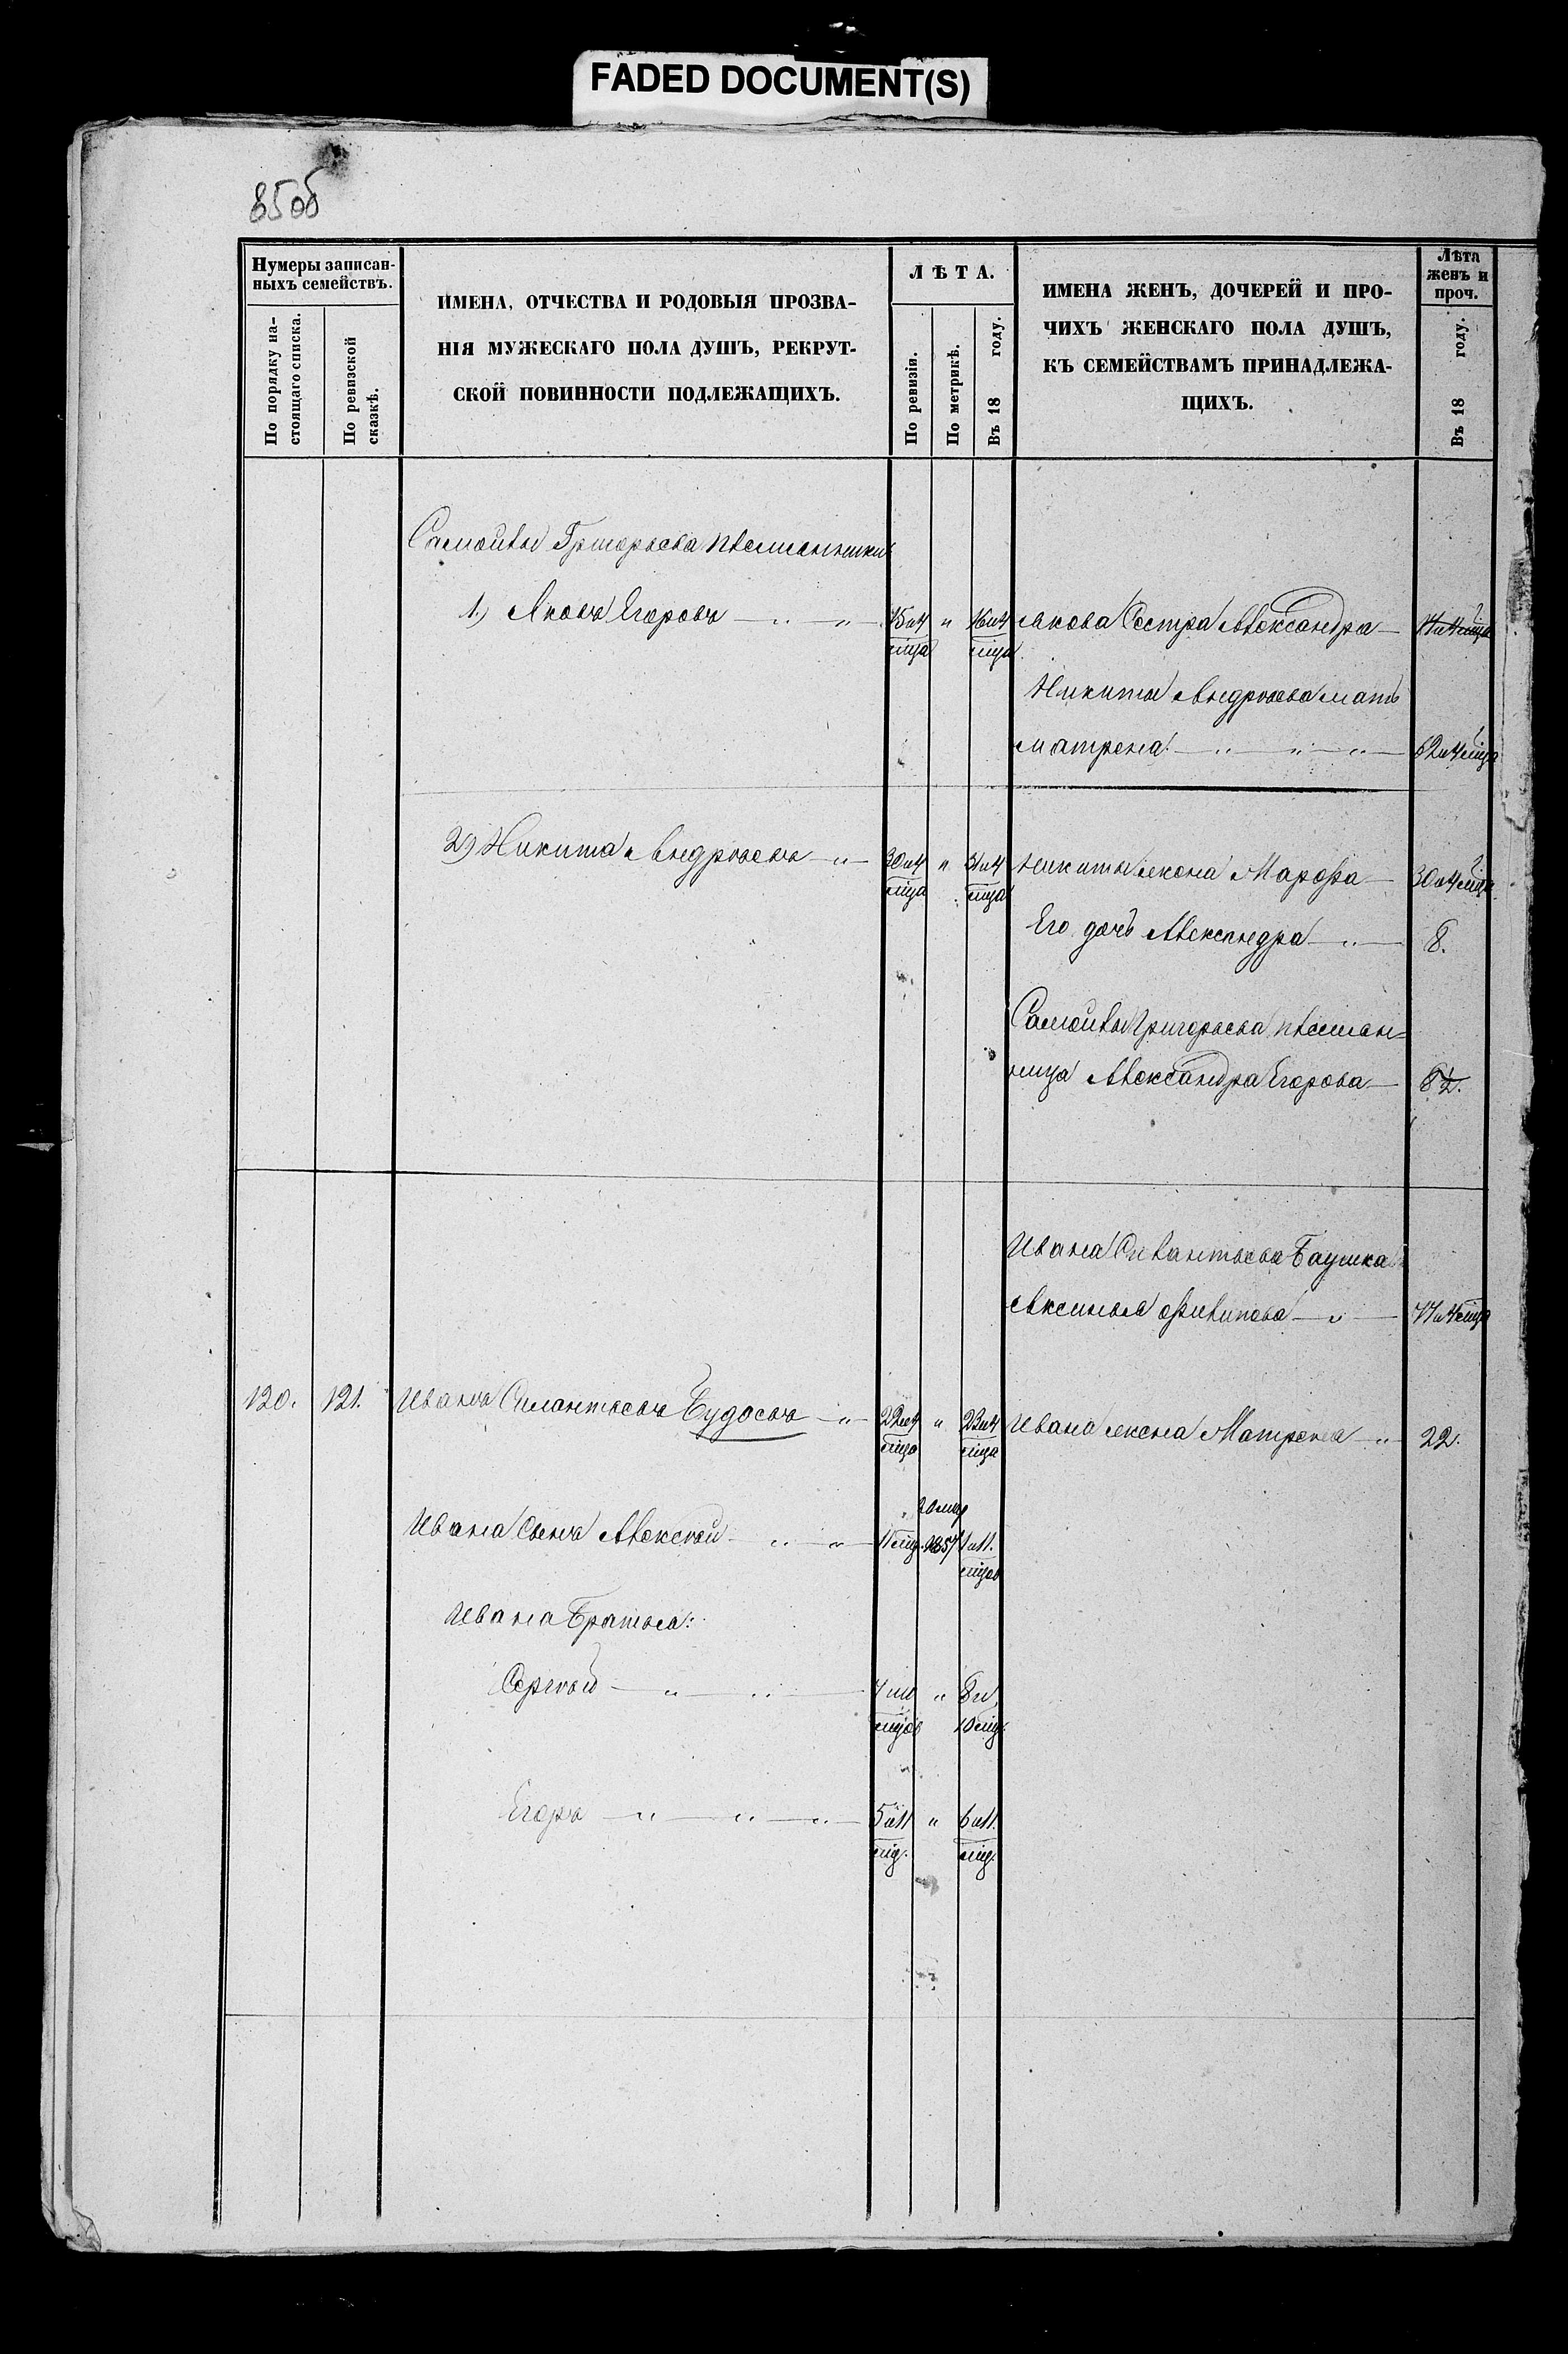 FADED DOCUMENT(S)
85об
Нумеры записан-
ныхъ семействъ.
По порядку на-
стоящаго списка.
По ревизской
сказкѣ.
ИМЕНА, ОТЧЕСТВА И РОДОВЫЯ ПРОЗВА-
НІЯ МУЖЕСКАГО ПОЛА ДУШЪ, РЕКРУТ-
СКОЙ ПОВИННОСТИ ПОДЛЕЖАЩИХЪ.
ЛѢТА.
По ревизіи.
По метрикѣ.
Въ 18 году.
ИМЕНА ЖЕНЪ, ДОЧЕРЕЙ И ПРО-
ЧИХЪ ЖЕНСКАГО ПОЛА ДУШЪ,
КЪ СЕМЕЙСТВАМЪ ПРИНАДЛЕЖА-
ЩИХЪ.
Лѣта
женъ и
проч.
Въ 18 году.
Самойлы Григорьева племянники
1.) Яковъ Егоровъ — " — " — 15 и 4 мца " 16 и 4 мца Якова Сестра Александра —
Никиты Андреева мать
Матрена — " — " — " — 62 и 4 мца
2) Никита Андреевъ — " — 30 и 4 мца " 31 и 4 мца Никиты жена Марфа — 30 и 4 мца
Его дочь Александра — " — 8.
Самойлы Григорьева племян=
ница Александра Егорова —
Ивана Силантьева Баушка
Аксинья Филипова — " — 77 и 4 мца
120. 121. Иванъ Силантьевъ Будаевъ — " — 22 и 4 мца " 23 и 4 мца Ивана жена Матрена " 22.
Ивана Сынъ Алексѣй — " — " — 11 мц. 1857 1 и 11. мцов
Ивана Братья:
Сергѣй — " — " — 7 и 10 мцов " 8 и 10 мц.
Егоръ — " — " — " — 5 и 11 мц. " 6 и 11. мц.